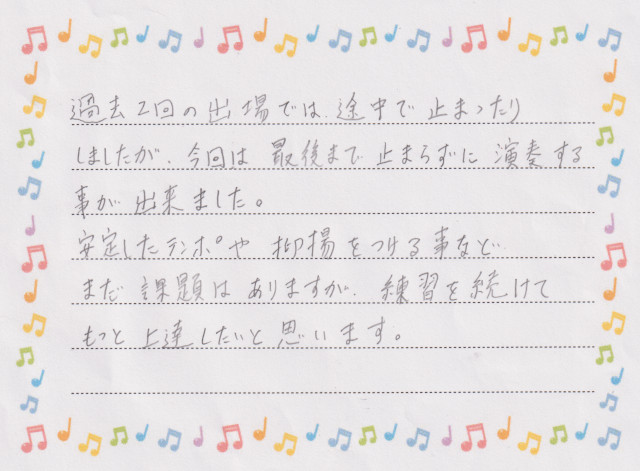 過去2回の出場では、途中で止まったり
しましたが、今回は最後まで止まらずに演奏する
事が出来ました。
安定したテンポや抑揚をつける事など
まだ課題はありますが、練習を続けて
もっと上達したいと思います。